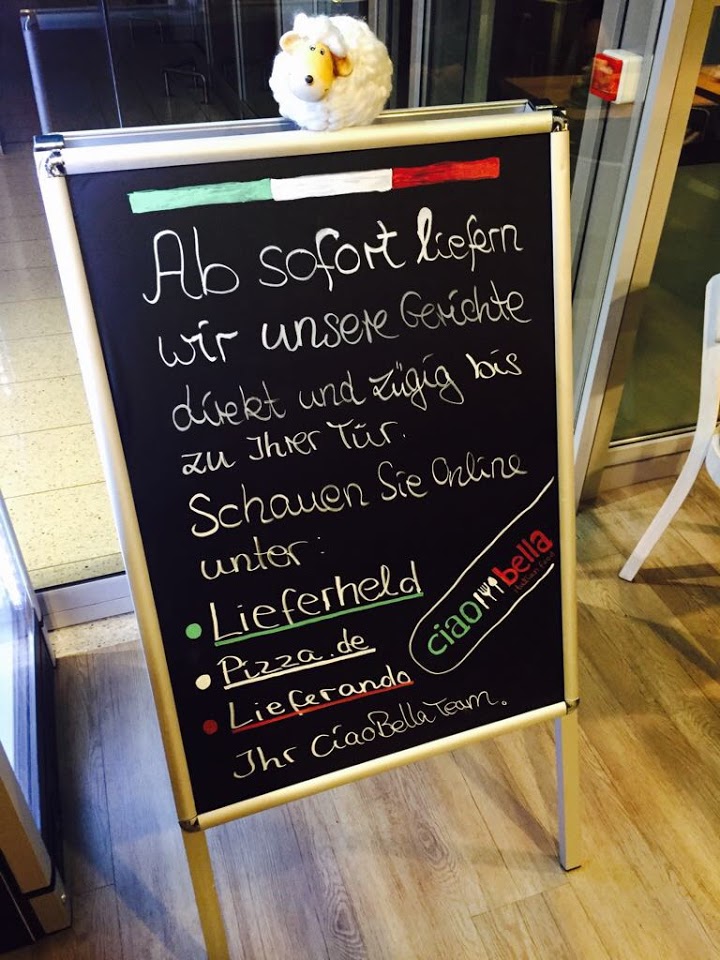 Ab sofort liefern
wir unsere Gerichte
direkt und zügig bis
zu Ihrer Tür.
Schauen Sie Online
unter:
Lieferheld
Pizza.de
Lieferando
Ihr CiaoBella Team.
ciao bella
italian food